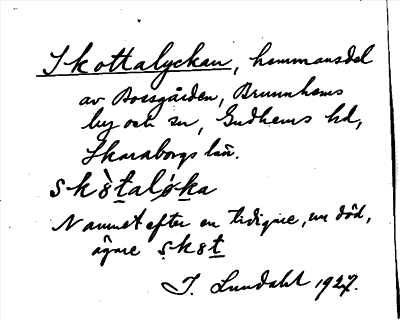 Skottalyckan, hemmansdel
av Bossgården, Brunnhems
by och sn, Gudhems hd,
Skaraborgs län.
skòtalýka
Namnet efter en tidigare, nu död,
ägare skot
J. Lundahl 1927.